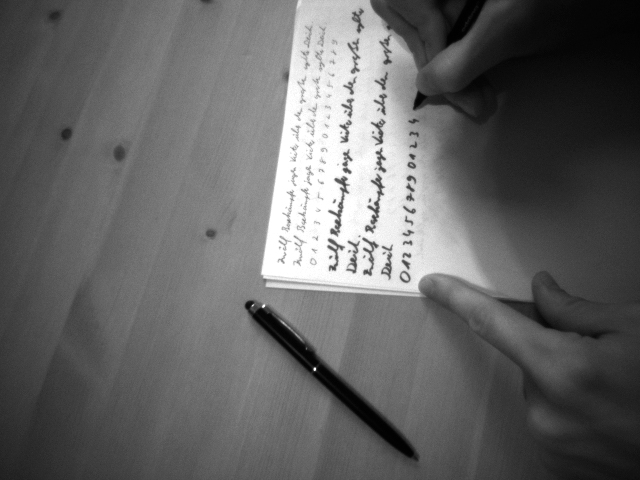 Zwölf Boxkämpfer jagen Viktor über den großen Sylter Deich.
Zwölf Boxkämpfer jagen Viktor über den großen Sylter Deich.
0 1 2 3 4 5 6 7 8 9 0 1 2 3 4 5 6 7 8 9
Zwölf Boxkämpfer jagen Viktor über den großen Sylter
Deich.
Zwölf Boxkämpfer jagen Viktor über den großen
Deich
0123456789 01234